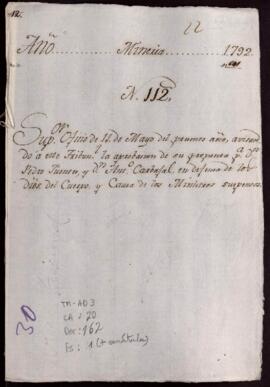 12.
12
Año....... Mineria....... 1792
N. 112
Sup.or Oficio de 11. de Mayo del presente año, avisan
do a este Tribun.l la aprobacion de su propuesta p.a D.n
Pedro y D.n Ant.o Carbajal, en defensa de los
dros. del Cuerpo, y Causa de los Ministros suspensos.
TM-AD3
CA: 20
Doc: 162
Fs: 1 (+ carátula)
30